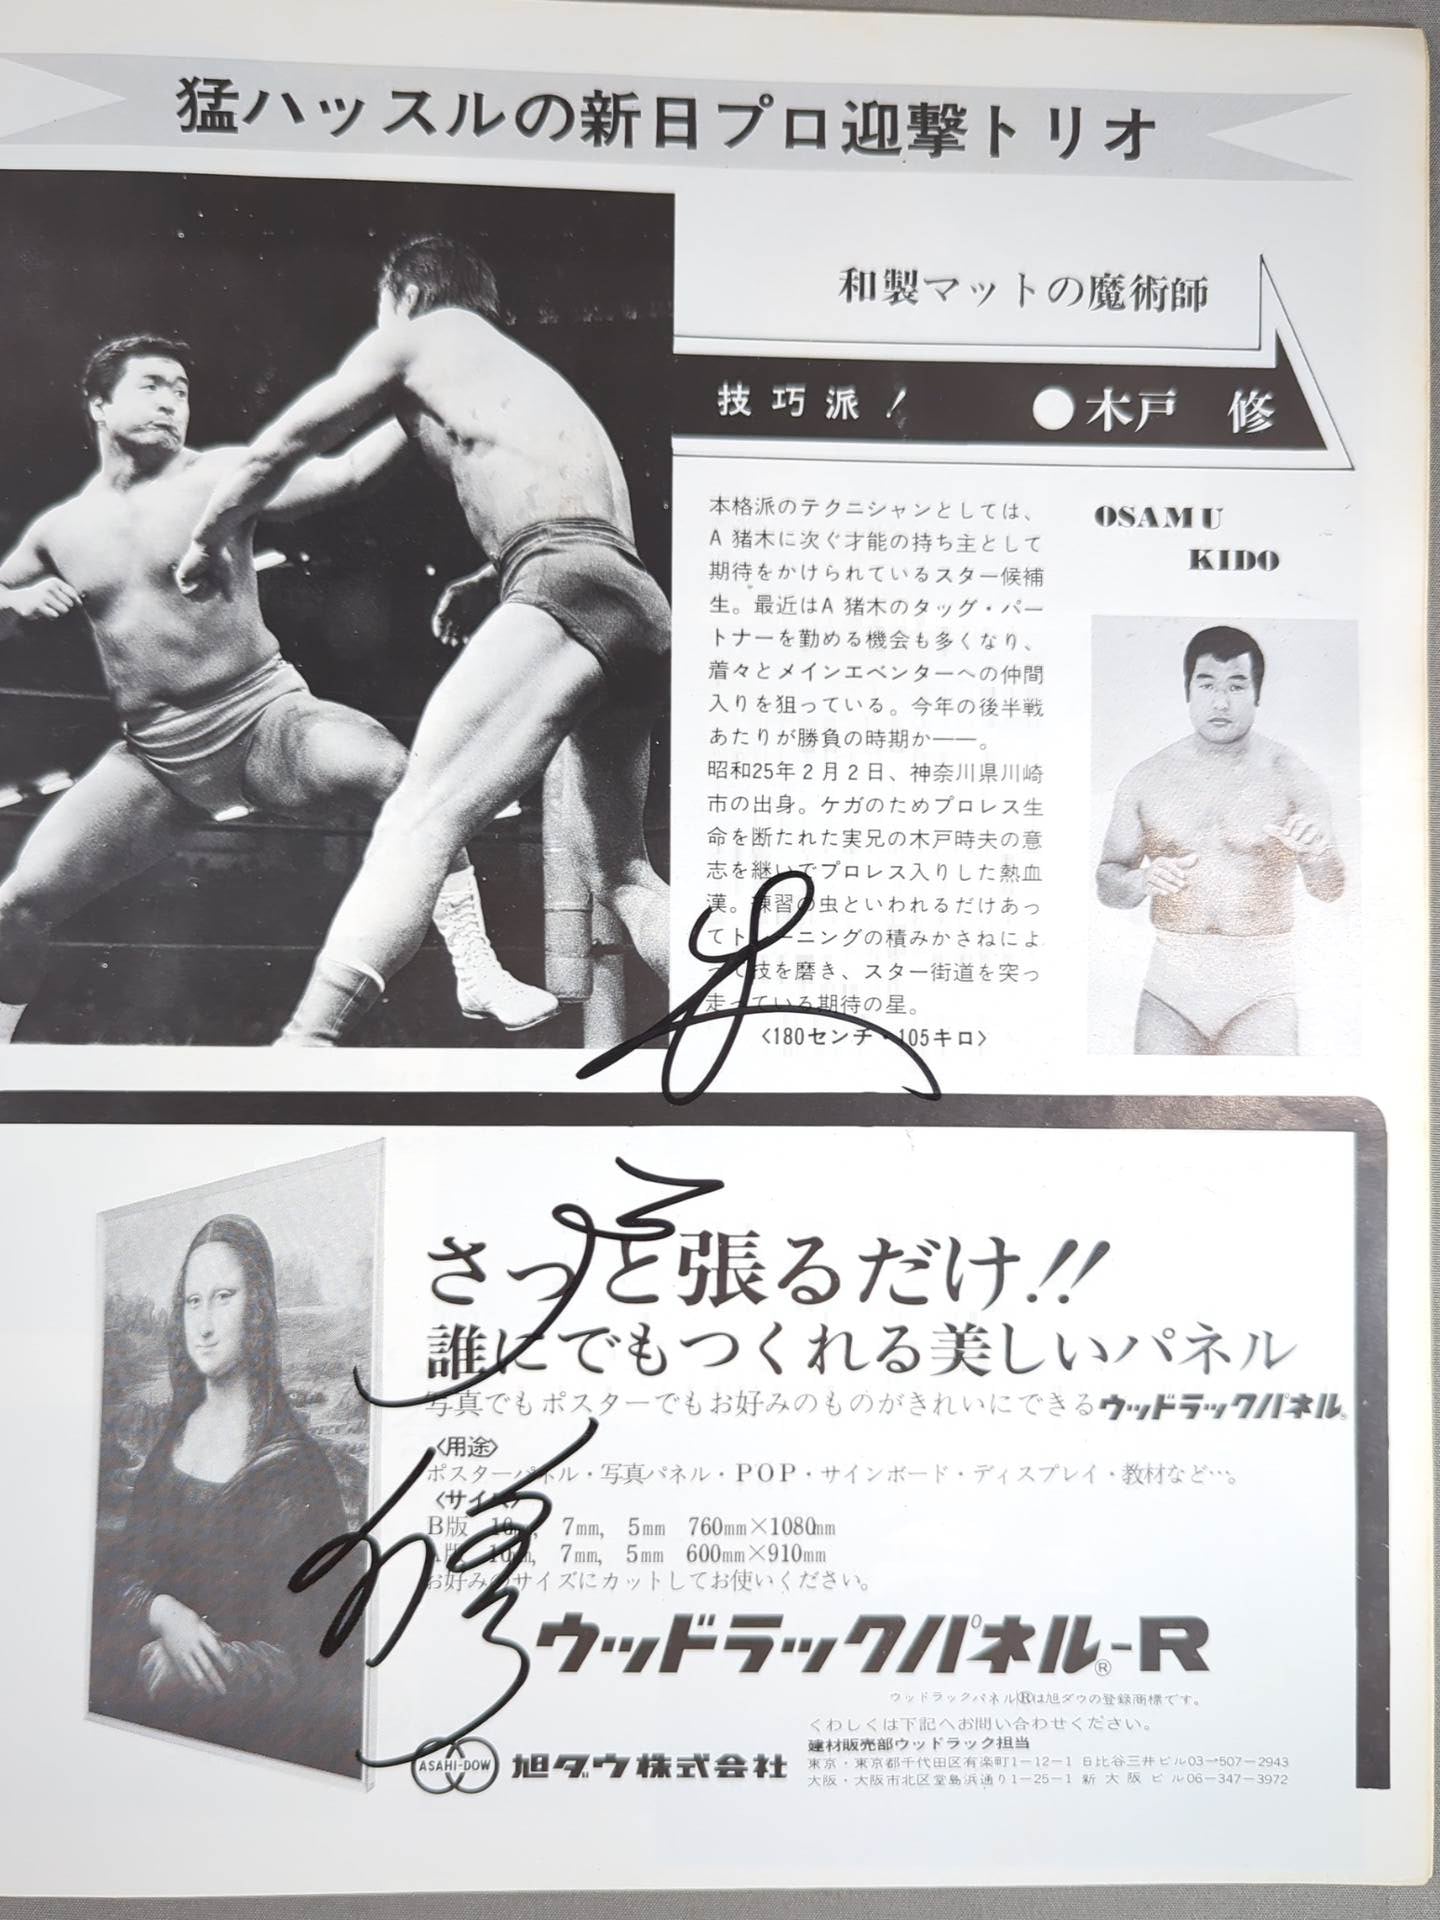 猛ハッスルの新日プロ迎撃トリオ
和製マットの魔術師
技巧派！ ●木戸 修
OSAMU
KIDO
本格派のテクニシャンとしては、
A猪木に次ぐ才能の持ち主として
期待をかけられているスター候補
生。最近はA猪木のタッグ・パー
トナーを勤める機会も多くなり、
着々とメインエベンターへの仲間
入りを狙っている。今年の後半戦
あたりが勝負の時期か――。
昭和25年2月2日、神奈川県川崎
市の出身。ケガのためプロレス生
命を断たれた実兄の木戸時夫の意
志を継いでプロレス入りした熱血
漢。練習の虫といわれるだけあっ
てトレーニングの積みかさねによ
って技を磨き、スター街道を突っ
走っている期待の星。
〈180センチ・105キロ〉
木戸
修
さっと張るだけ!!
誰にでもつくれる美しいパネル
写真でもポスターでもお好みのものがきれいにできるウッドラックパネル®
〈用途〉
ポスターパネル・写真パネル・POP・サインボード・ディスプレイ・教材など…。
〈サイズ〉
B版 10mm, 7mm, 5mm 760mm×1080mm
A版 10mm, 7mm, 5mm 600mm×910mm
お好みのサイズにカットしてお使いください。
ウッドラックパネル®-R
ウッドラックパネル®は旭ダウの登録商標です。
くわしくは下記へお問い合わせください。
建材販売部ウッドラック担当
ASAHI-DOW 旭ダウ株式会社
東京・東京都千代田区有楽町1-12-1 日比谷三井ビル03-507-2943
大阪・大阪市北区堂島浜通り1-25-1 新大阪ビル06-347-3972